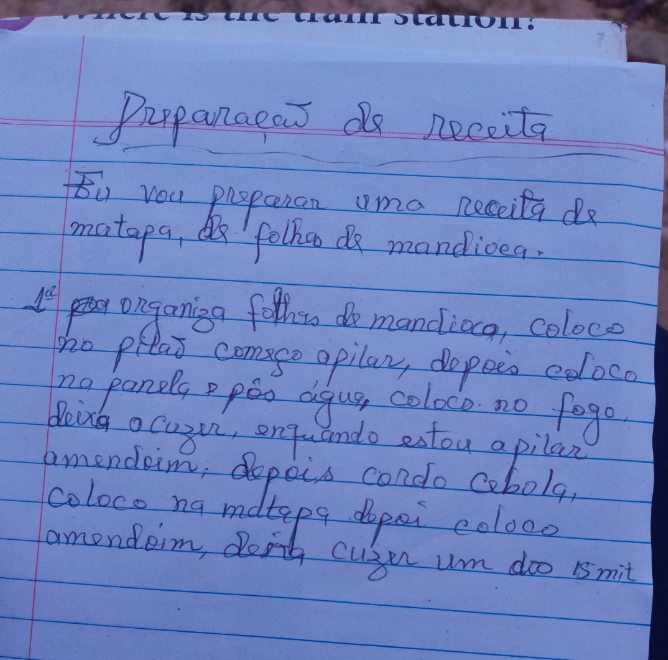 Where is the train station?
Preparação de receita
Eu vou preparar uma receita de
matapa, de folhas de mandioca.
1ª organiza folhas de mandioca, coloco
no pilaõ começo apilar, depois coloco
na panela e pôs água, coloco no fogo.
deixa a cuzer, enquando estou apilar
amendoim, depois cordo cebola,
coloco na matapa depoi coloco
amendoim, deixa cuzer um doo 15 mit